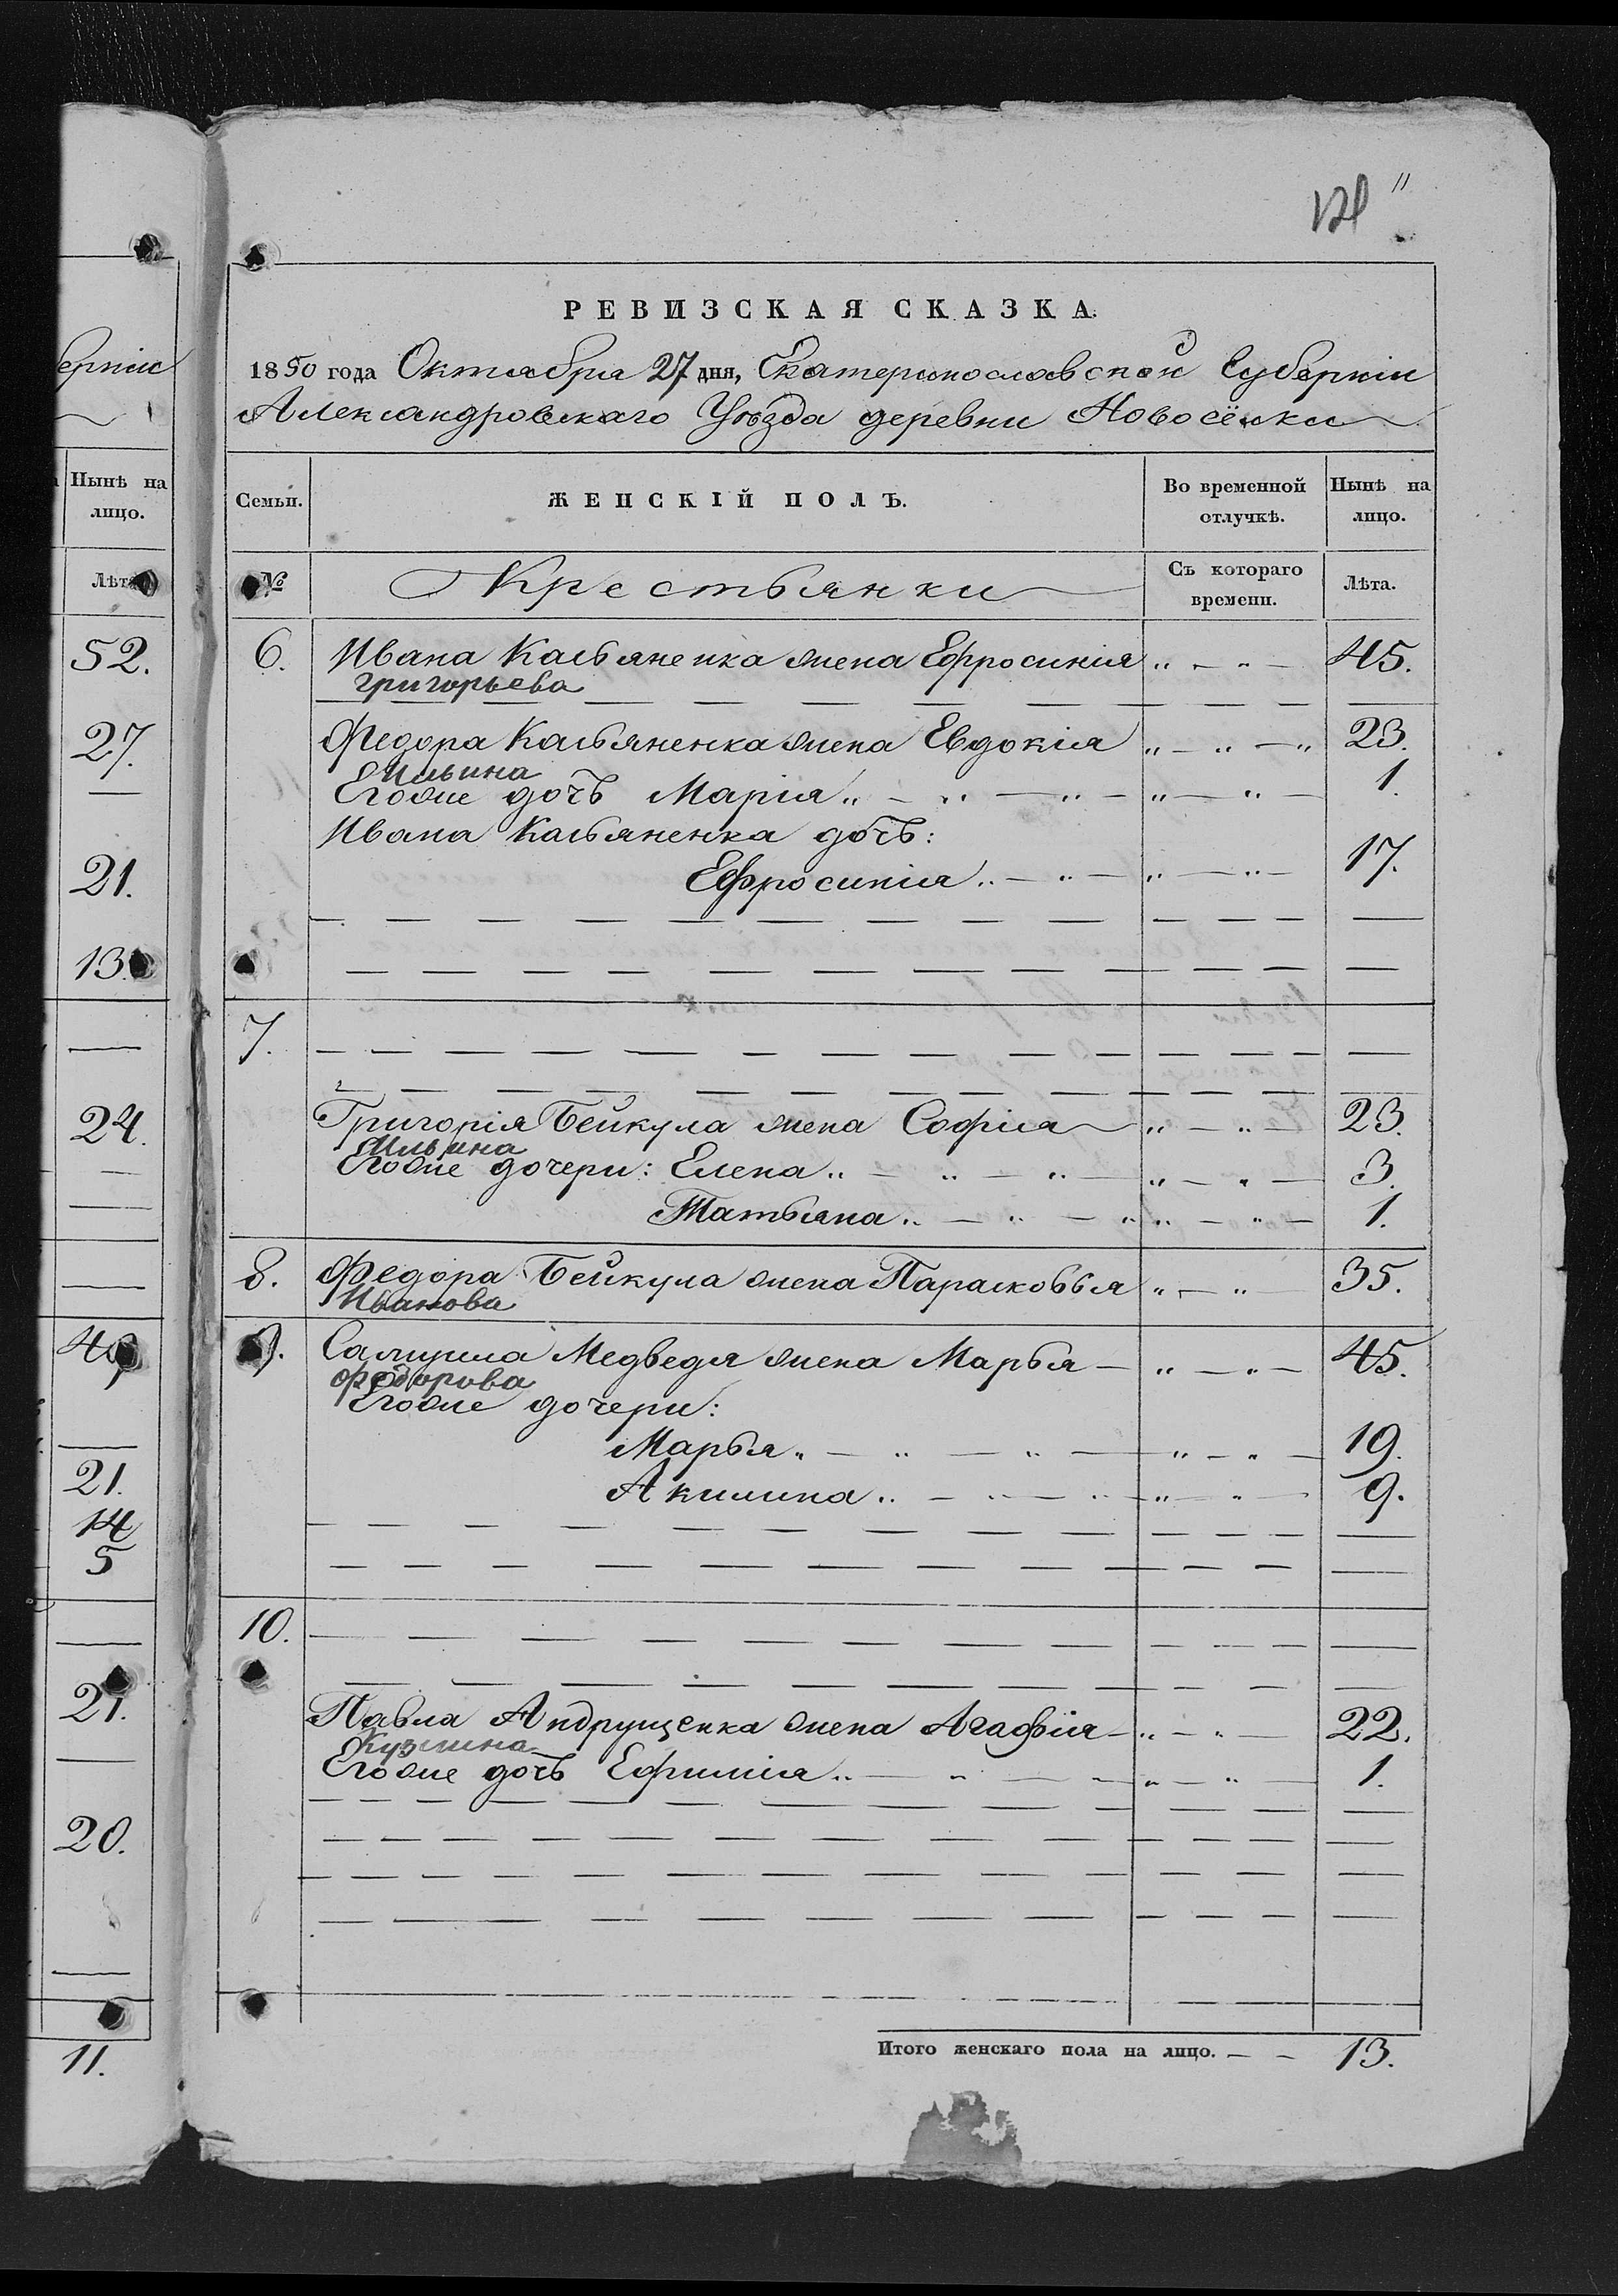 ерніи
Нынѣ на
лицо.
Лѣта
52.
27.
21.
13.
24.
21.
14
5
21.
20.
11.
"
РЕВИЗСКАЯ СКАЗКА.
1850 года Октября 27 дня, Екатеринославской Губерніи
Александровскаго Уѣзда деревни Новосёлки
Семьи.
ЖЕНСКІЙ ПОЛЪ.
Во временной
отлучкѣ.
Нынѣ на
лицо.
№
Крестьянки
Съ котораго
времени.
Лѣта.
6. Ивана Касьяненка жена Ефросинія „ — „ — 45.
Григорьева
Федора Касьяненка жена Евдокія „ — „ — „ 23.
Ильина
Егоже дочь Марія „ — „ — „ — „ — „ — 1.
Ивана Касьяненка дочь:
Ефросинія „ — „ — „ — „ — 17.
7.
Григорія Бейкула жена Софія „ — „ — 23.
Ильина
Егоже дочери: Елена „ — „ — „ — „ — „ — 3.
Татьяна „ — „ — „ „ — „ — 1.
8. Федора Бейкула жена Парасковья „ — „ — 35.
Иванова
9. Самуила Медведя жена Марья — „ — „ — 45.
Федорова
Егоже дочери:
Марья „ — „ — „ — „ — „ — 19.
Акилина „ — „ — „ — „ — „ — 9.
10.
Павла Андрущенка жена Агафія — „ — „ — 22.
Кузмина
Егоже дочь Ефимія „ — „ — „ — „ — „ — 1.
Итого женскаго пола на лицо. — — 13.